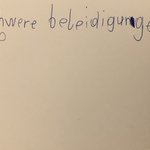 hwere beleidigung